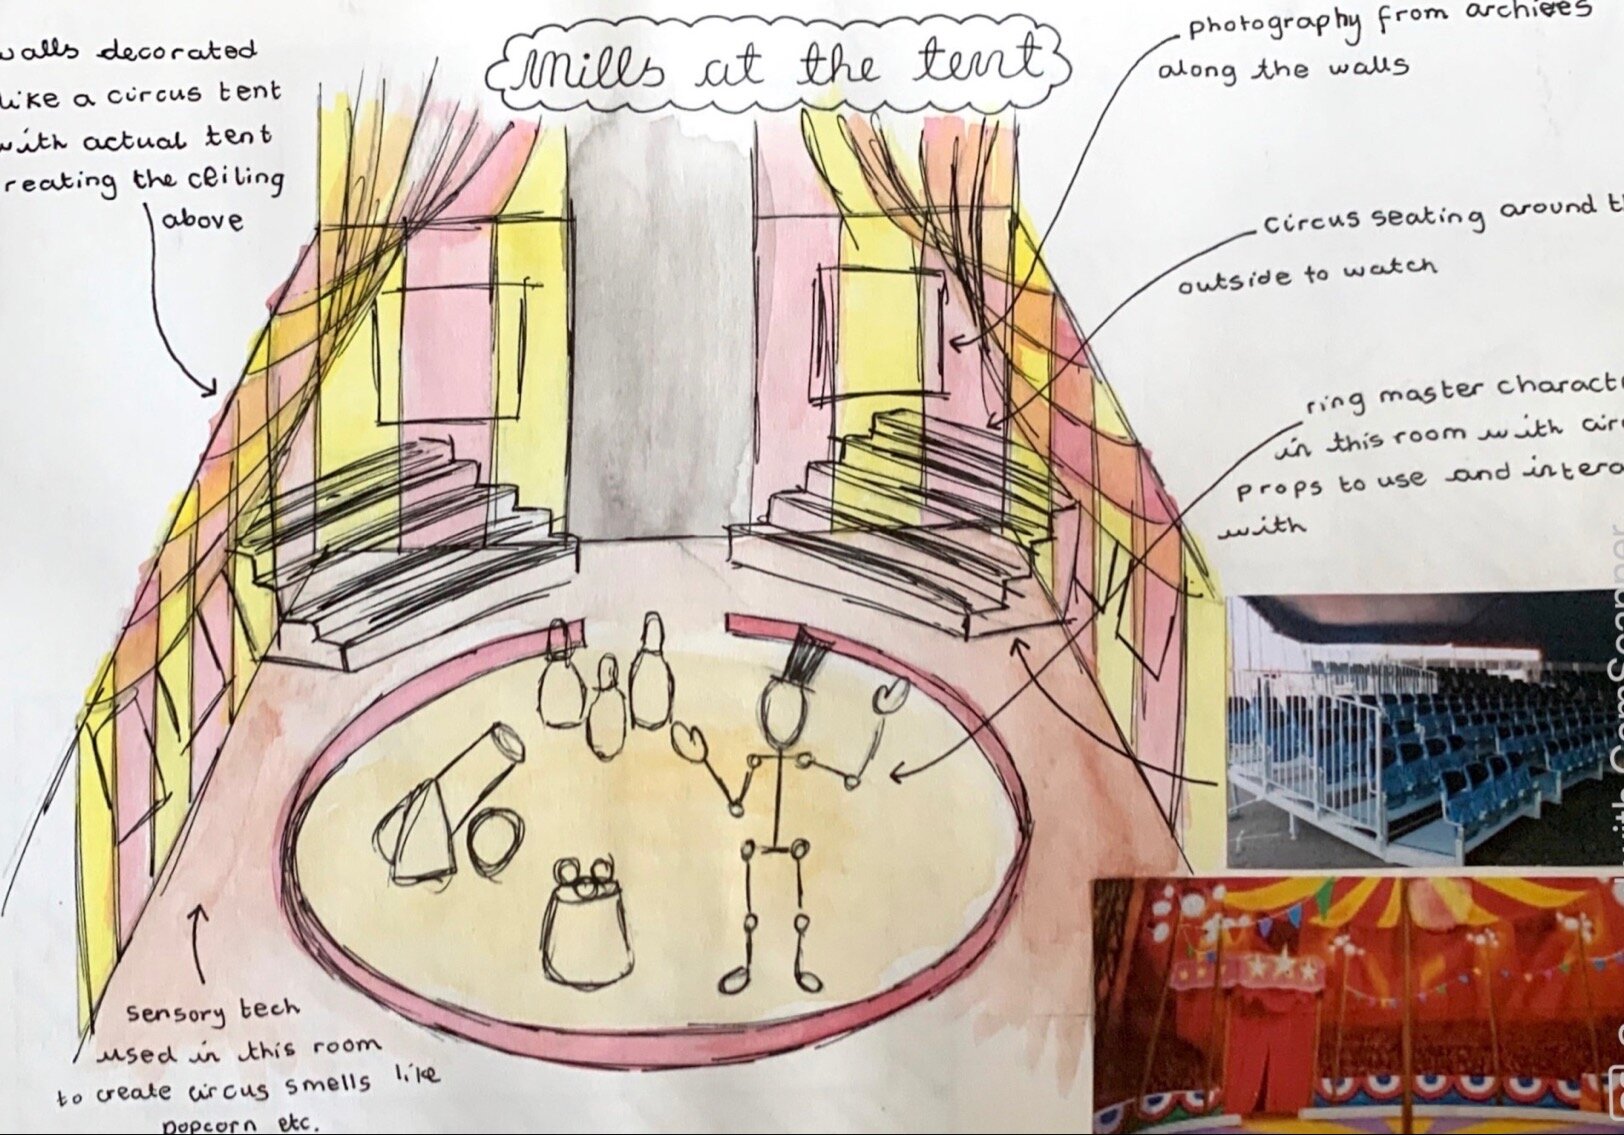 mills at the tent
walls decorated
like a circus tent
with actual tent
reating the ceiling
above
photography from archives
along the walls
circus seating around t
outside to watch
ring master charact
in this room with circ
props to use and intera
with
sensory tech
used in this room
to create circus smells like
popcorn etc.
with CamScanner